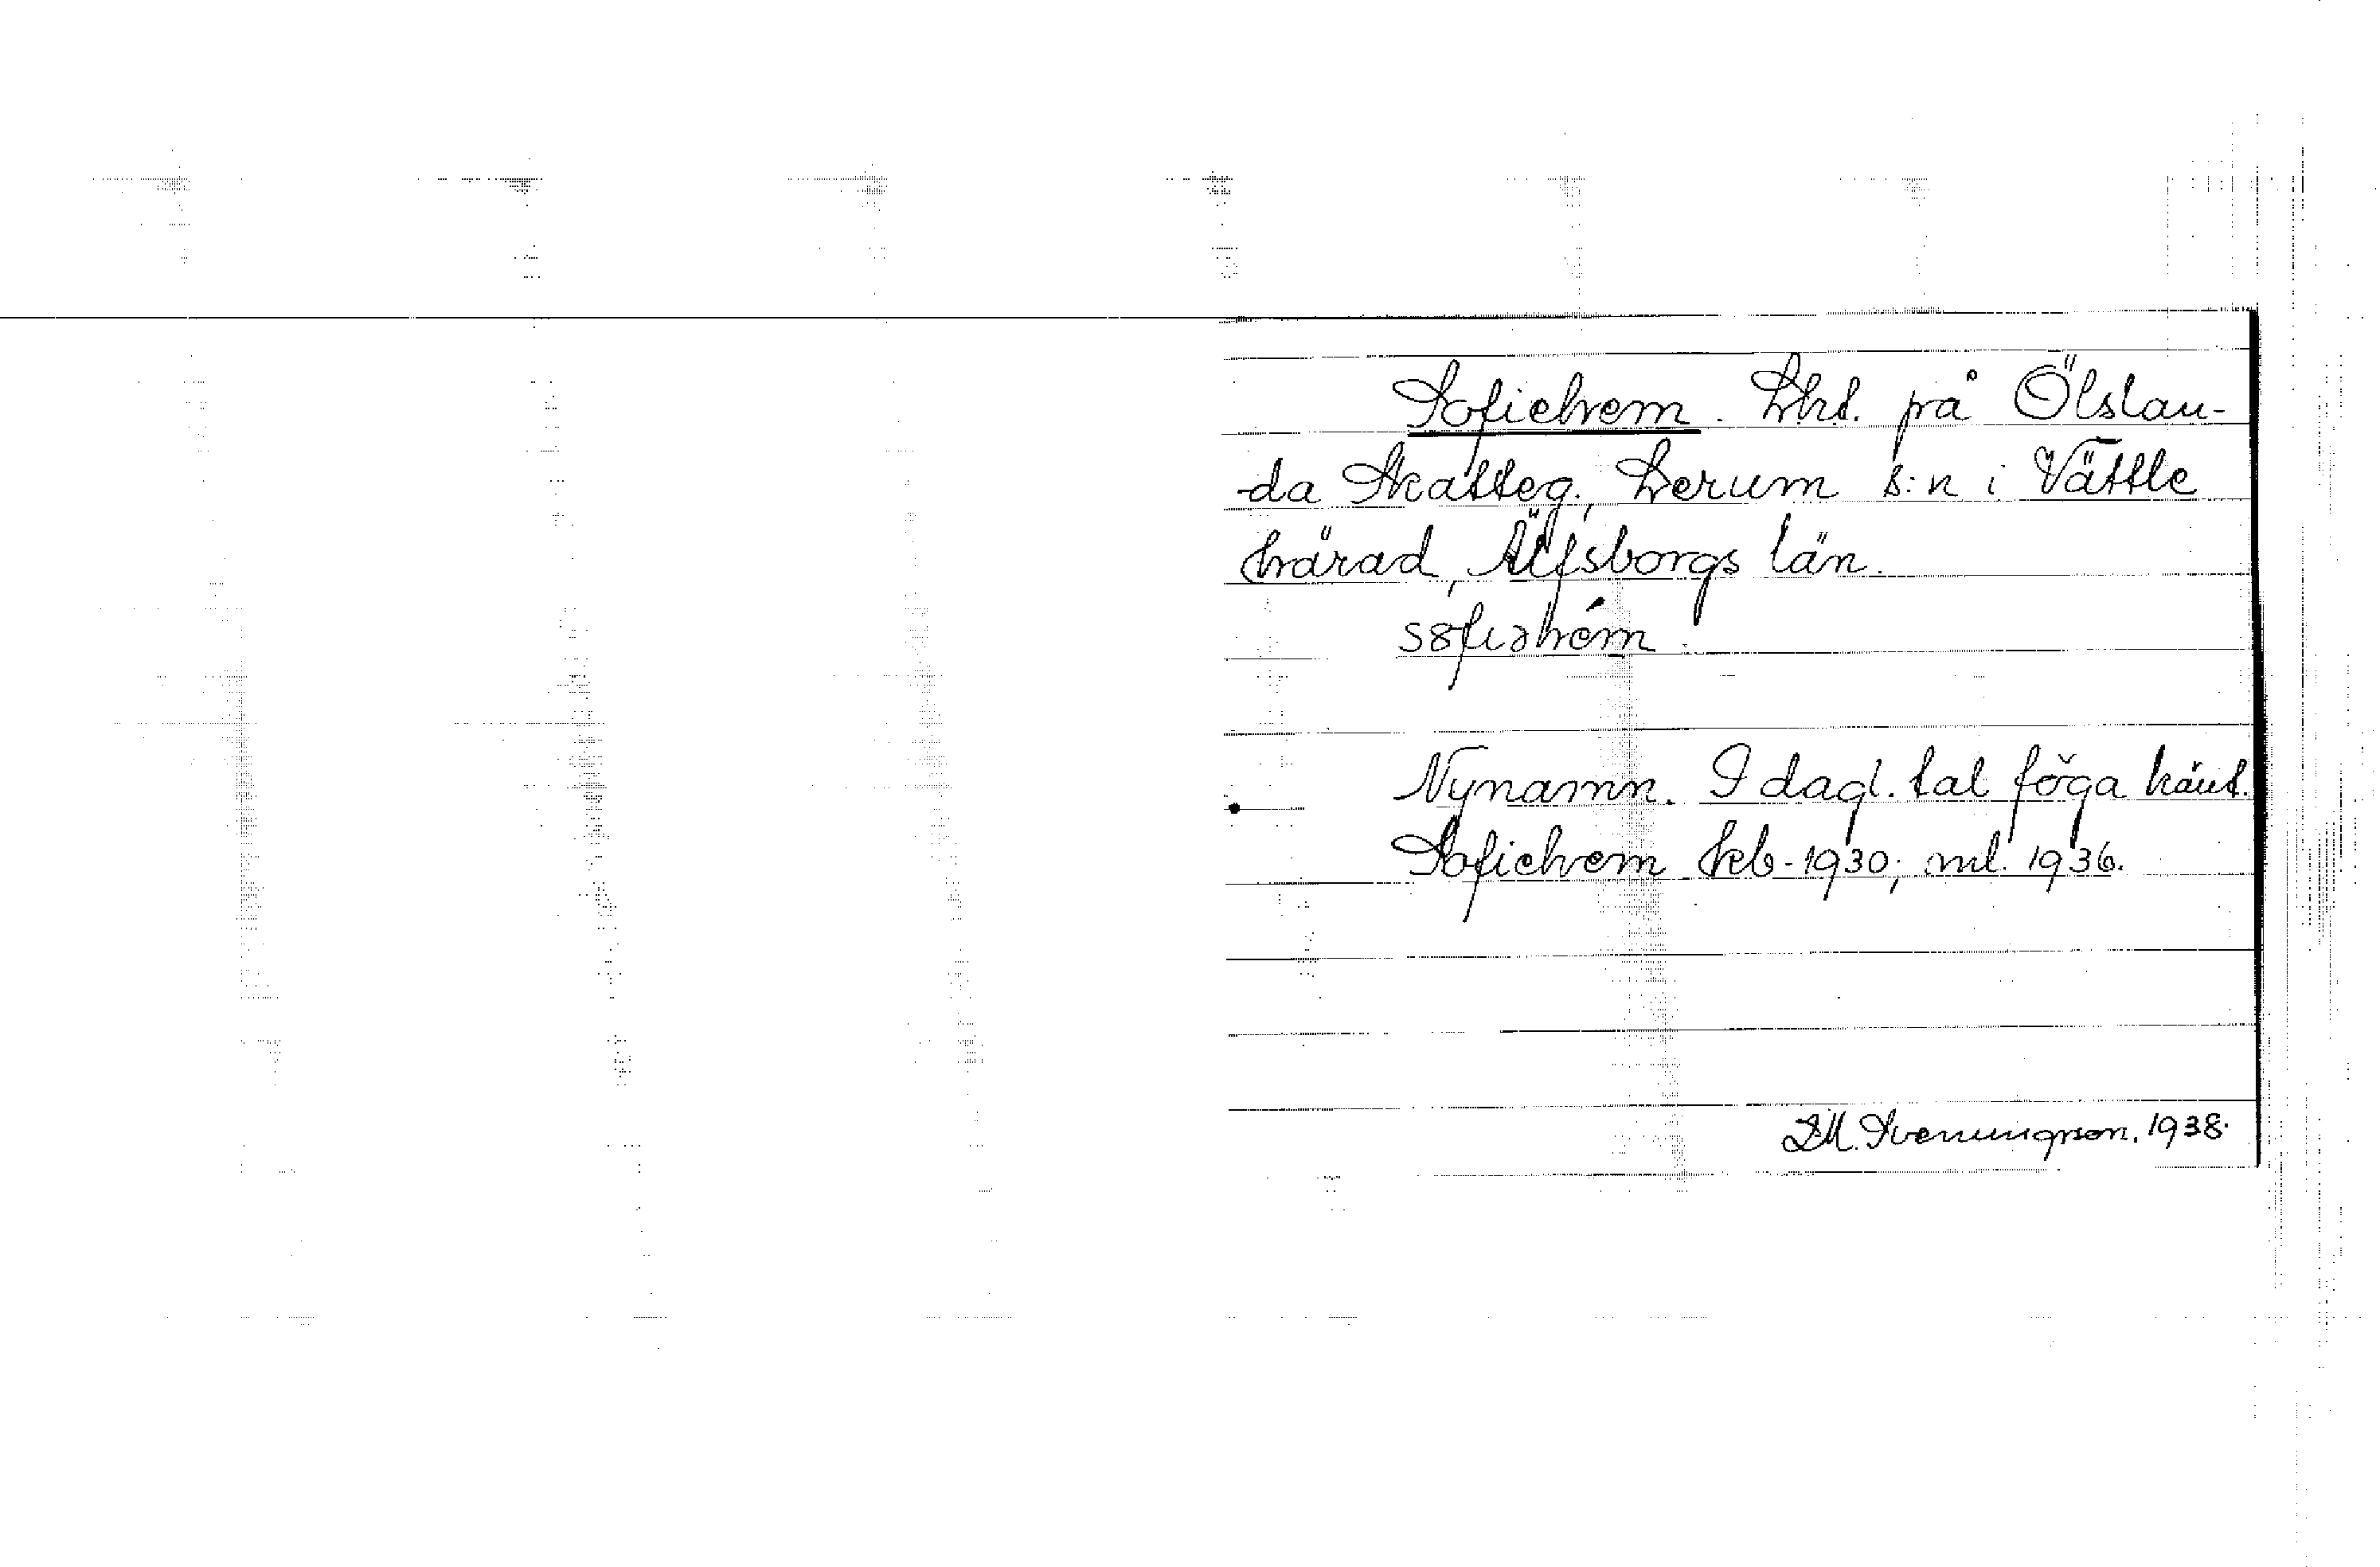 Sofiehem. Lht. på Ölslan-
da Skatteg., Lerum s:n i Vättle
härad, Älfsborgs län.
Nynamn. I dagl. tal föga känt.
Sofiehem hfb-1930; ml. 1936.
D.M. Svenningson. 1938.